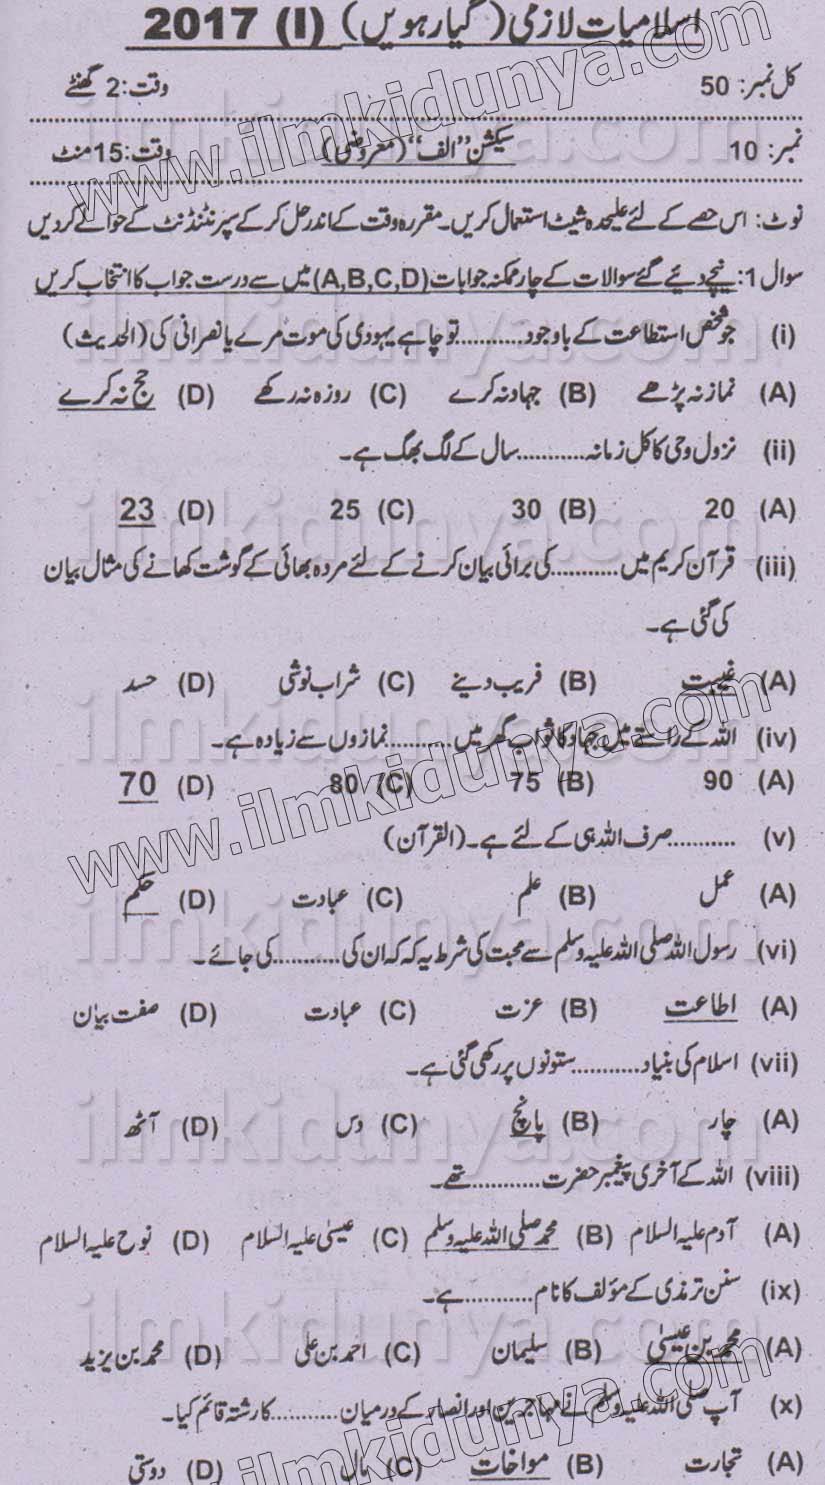 اسلامیات لازمی (گیارہویں) (I) 2017
کل نمبر: 50 وقت: 2 گھنٹے
نمبر: 10 سیکشن "الف" (معروضی) وقت: 15 منٹ
نوٹ: اس حصے کے لئے علیحدہ شیٹ استعمال کریں۔ مقررہ وقت کے اندر حل کر کے سپرنٹنڈنٹ کے حوالے کر دیں
سوال 1: نیچے دیئے گئے سوالات کے چار ممکنہ جوابات (A,B,C,D) میں سے درست جواب کا انتخاب کریں
(i) جو شخص استطاعت کے باوجود...........تو چاہے یہودی کی موت مرے یا نصرانی کی (الحدیث)
(A) نماز نہ پڑھے (B) جہاد نہ کرے (C) روزہ نہ رکھے (D) حج نہ کرے
(ii) نزول وحی کا کل زمانہ...........سال کے لگ بھگ ہے۔
(A) 20 (B) 30 (C) 25 (D) 23
(iii) قرآن کریم میں...........کی برائی بیان کرنے کے لئے مردہ بھائی کے گوشت کھانے کی مثال بیان
کی گئی ہے۔
(A) غیبت (B) فریب دینے (C) شراب نوشی (D) حسد
(iv) اللہ کے راستے میں جہاد کا ثواب گھر میں...........نمازوں سے زیادہ ہے۔
(A) 90 (B) 75 (C) 80 (D) 70
(v) ...........صرف اللہ ہی کے لئے ہے۔ (القرآن)
(A) عمل (B) علم (C) عبادت (D) حکم
(vi) رسول اللہ صلی اللہ علیہ وسلم سے محبت کی شرط یہ کہ کہ ان کی...........کی جائے۔
(A) اطاعت (B) عزت (C) عبادت (D) صفت بیان
(vii) اسلام کی بنیاد...........ستونوں پر رکھی گئی ہے۔
(A) چار (B) پانچ (C) دس (D) آٹھ
(viii) اللہ کے آخری پیغمبر حضرت...........تھے۔
(A) آدم علیہ السلام (B) محمد صلی اللہ علیہ وسلم (C) عیسیٰ علیہ السلام (D) نوح علیہ السلام
(ix) سنن ترمذی کے مؤلف کا نام...........ہے۔
(A) محمد بن عیسیٰ (B) سلیمان (C) احمد بن علی (D) محمد بن یزید
(x) آپ صلی اللہ علیہ وسلم نے مہاجرین اور انصار کے درمیان...........کا رشتہ قائم کیا۔
(A) تجارت (B) مواخات (C) مال (D) دوستی
www.ilmkidunya.com
www.ilmkidunya.com
ilmkidunya.com
ilmkidunya.com
ilmkidunya.com
ilmkidunya.com
ilmkidunya.com
ilmkidunya.com
ilmkidunya.com
ilmkidunya.com